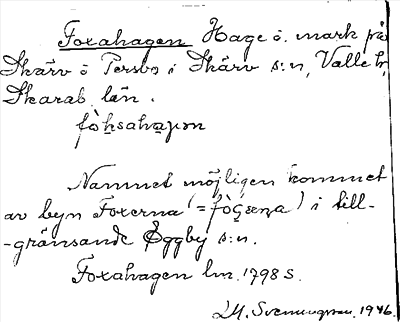 Foxahagen Hage ö. mark på
Skärv ö Persbo i Skärv s:n, Valle h,
Skarab. län.
fò̱ksahaɡən
Namnet möjligen kommet
av byn Foxerna (= fò
) i till-
-gränsande Eggby s:n.
Foxahagen lm. 1798 S.
M. Svenungsson. 1946.